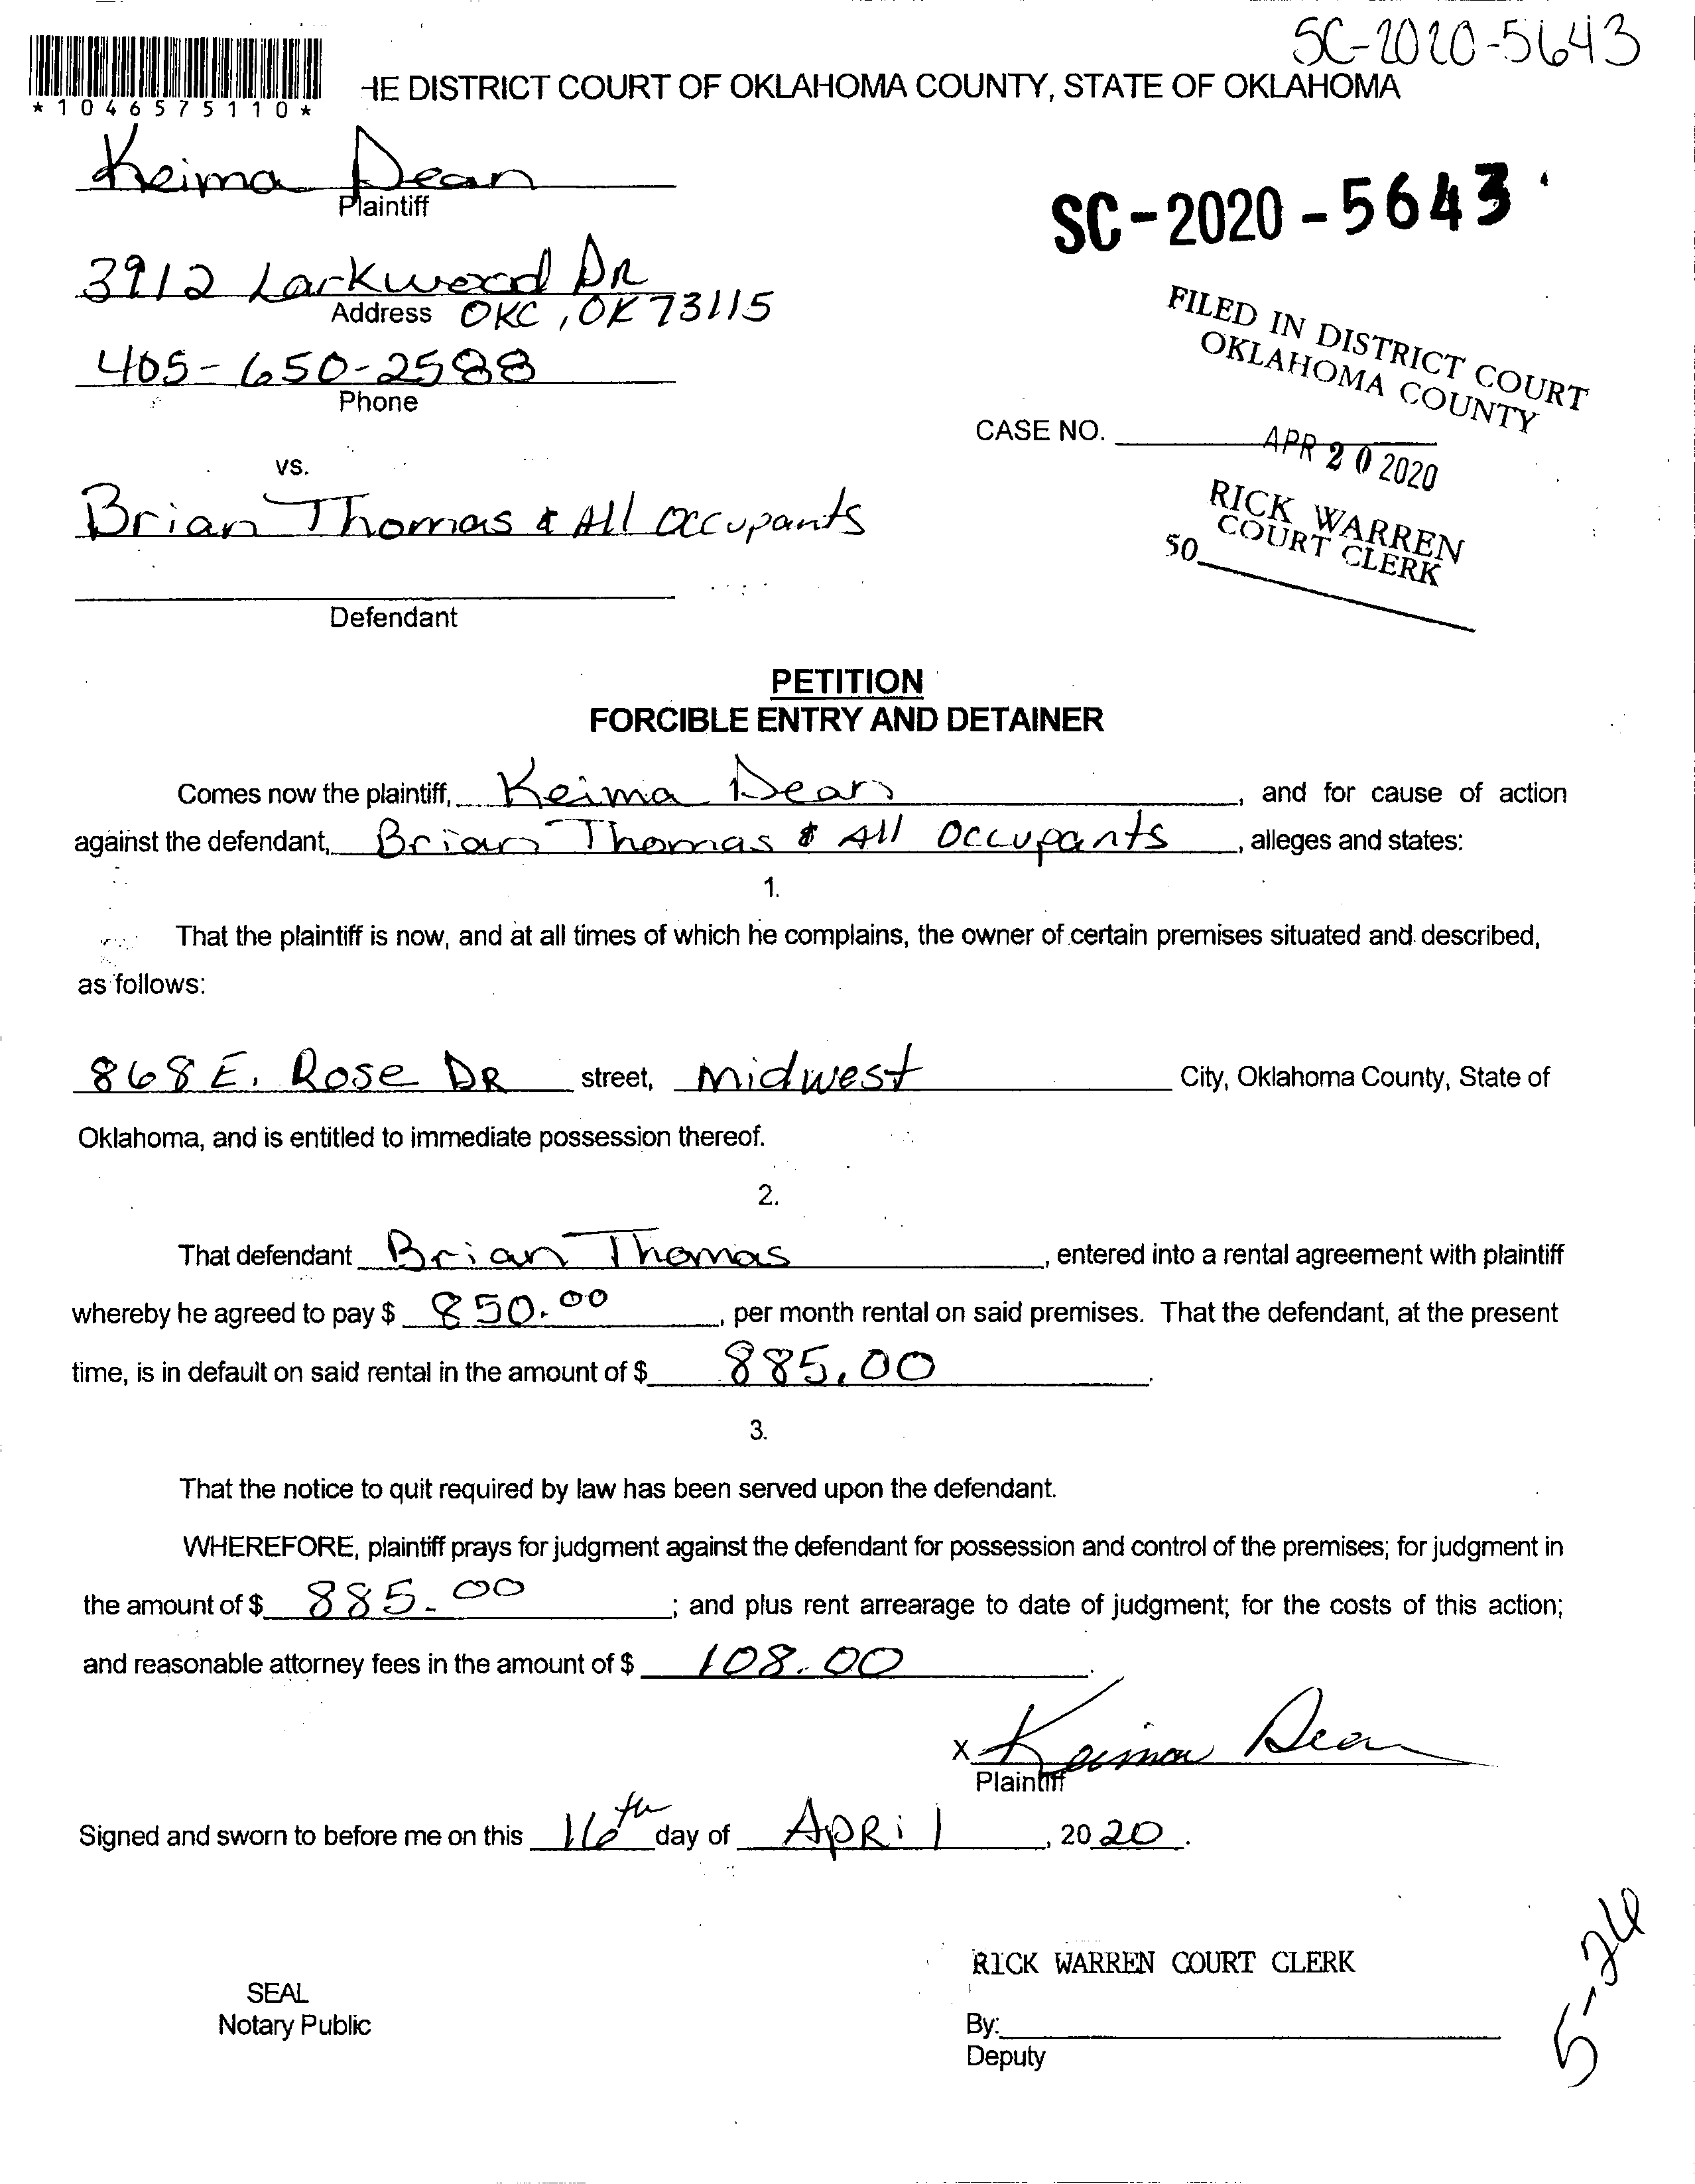 SC-2020-5643
*1046575110*
HE DISTRICT COURT OF OKLAHOMA COUNTY, STATE OF OKLAHOMA
Keima Dean
Plaintiff
SC-2020-5643
3912 Larkwood DR
Address OKC, OK 73115
FILED IN DISTRICT COURT
OKLAHOMA COUNTY
405-650-2588
Phone
CASE NO.
APR 20 2020
vs.
RICK WARREN
COURT CLERK
50
Brian Thomas & All Occupants
Defendant
PETITION
FORCIBLE ENTRY AND DETAINER
Comes now the plaintiff, Keima Dean, and for cause of action
against the defendant, Brian Thomas & All Occupants, alleges and states:
1.
That the plaintiff is now, and at all times of which he complains, the owner of certain premises situated and described,
as follows:
868 E. Rose DR street, Midwest City, Oklahoma County, State of
Oklahoma, and is entitled to immediate possession thereof.
2.
That defendant Brian Thomas, entered into a rental agreement with plaintiff
whereby he agreed to pay $ 850.00, per month rental on said premises. That the defendant, at the present
time, is in default on said rental in the amount of $ 885.00.
3.
That the notice to quit required by law has been served upon the defendant.
WHEREFORE, plaintiff prays for judgment against the defendant for possession and control of the premises; for judgment in
the amount of $ 885.00; and plus rent arrearage to date of judgment; for the costs of this action;
and reasonable attorney fees in the amount of $ 108.00.
X Keima Dean
Plaintiff
Signed and sworn to before me on this 16th day of April, 2020.
RICK WARREN COURT CLERK
SEAL
Notary Public
By:
Deputy